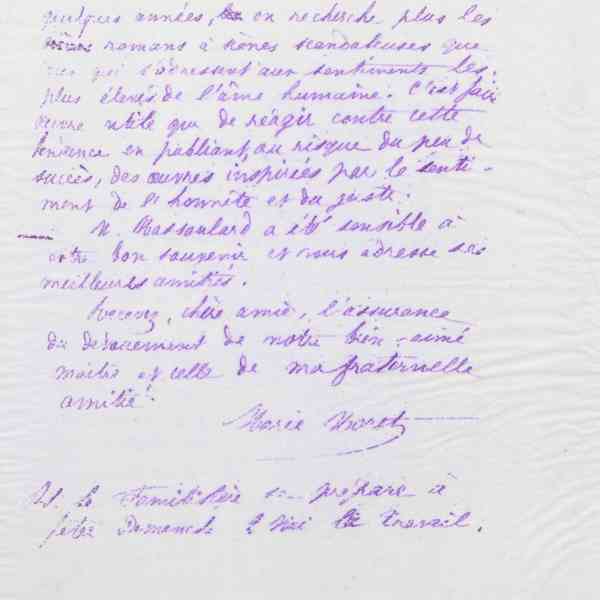 quelques années, on recherche plus les
romans à scènes scandaleuses que
ceux qui s'adressent aux sentiments les
plus élevés de l'âme humaine. C'est faire
œuvre utile que de réagir contre cette
tendance en publiant, au risque du peu de
succès, des œuvres inspirées par le senti-
ment de l'honnête et du juste.
M. Rassoulard a été sensible à
votre bon souvenir et vous adresse ses
meilleures amitiés.
Recevez, chère amie, l'assurance
du dévouement de notre bien-aimé
maître et celle de ma fraternelle
amitié.
Marie Moret
P.S. Le Familistère se prépare à
fêter Dimanche 2 Mai le travail.